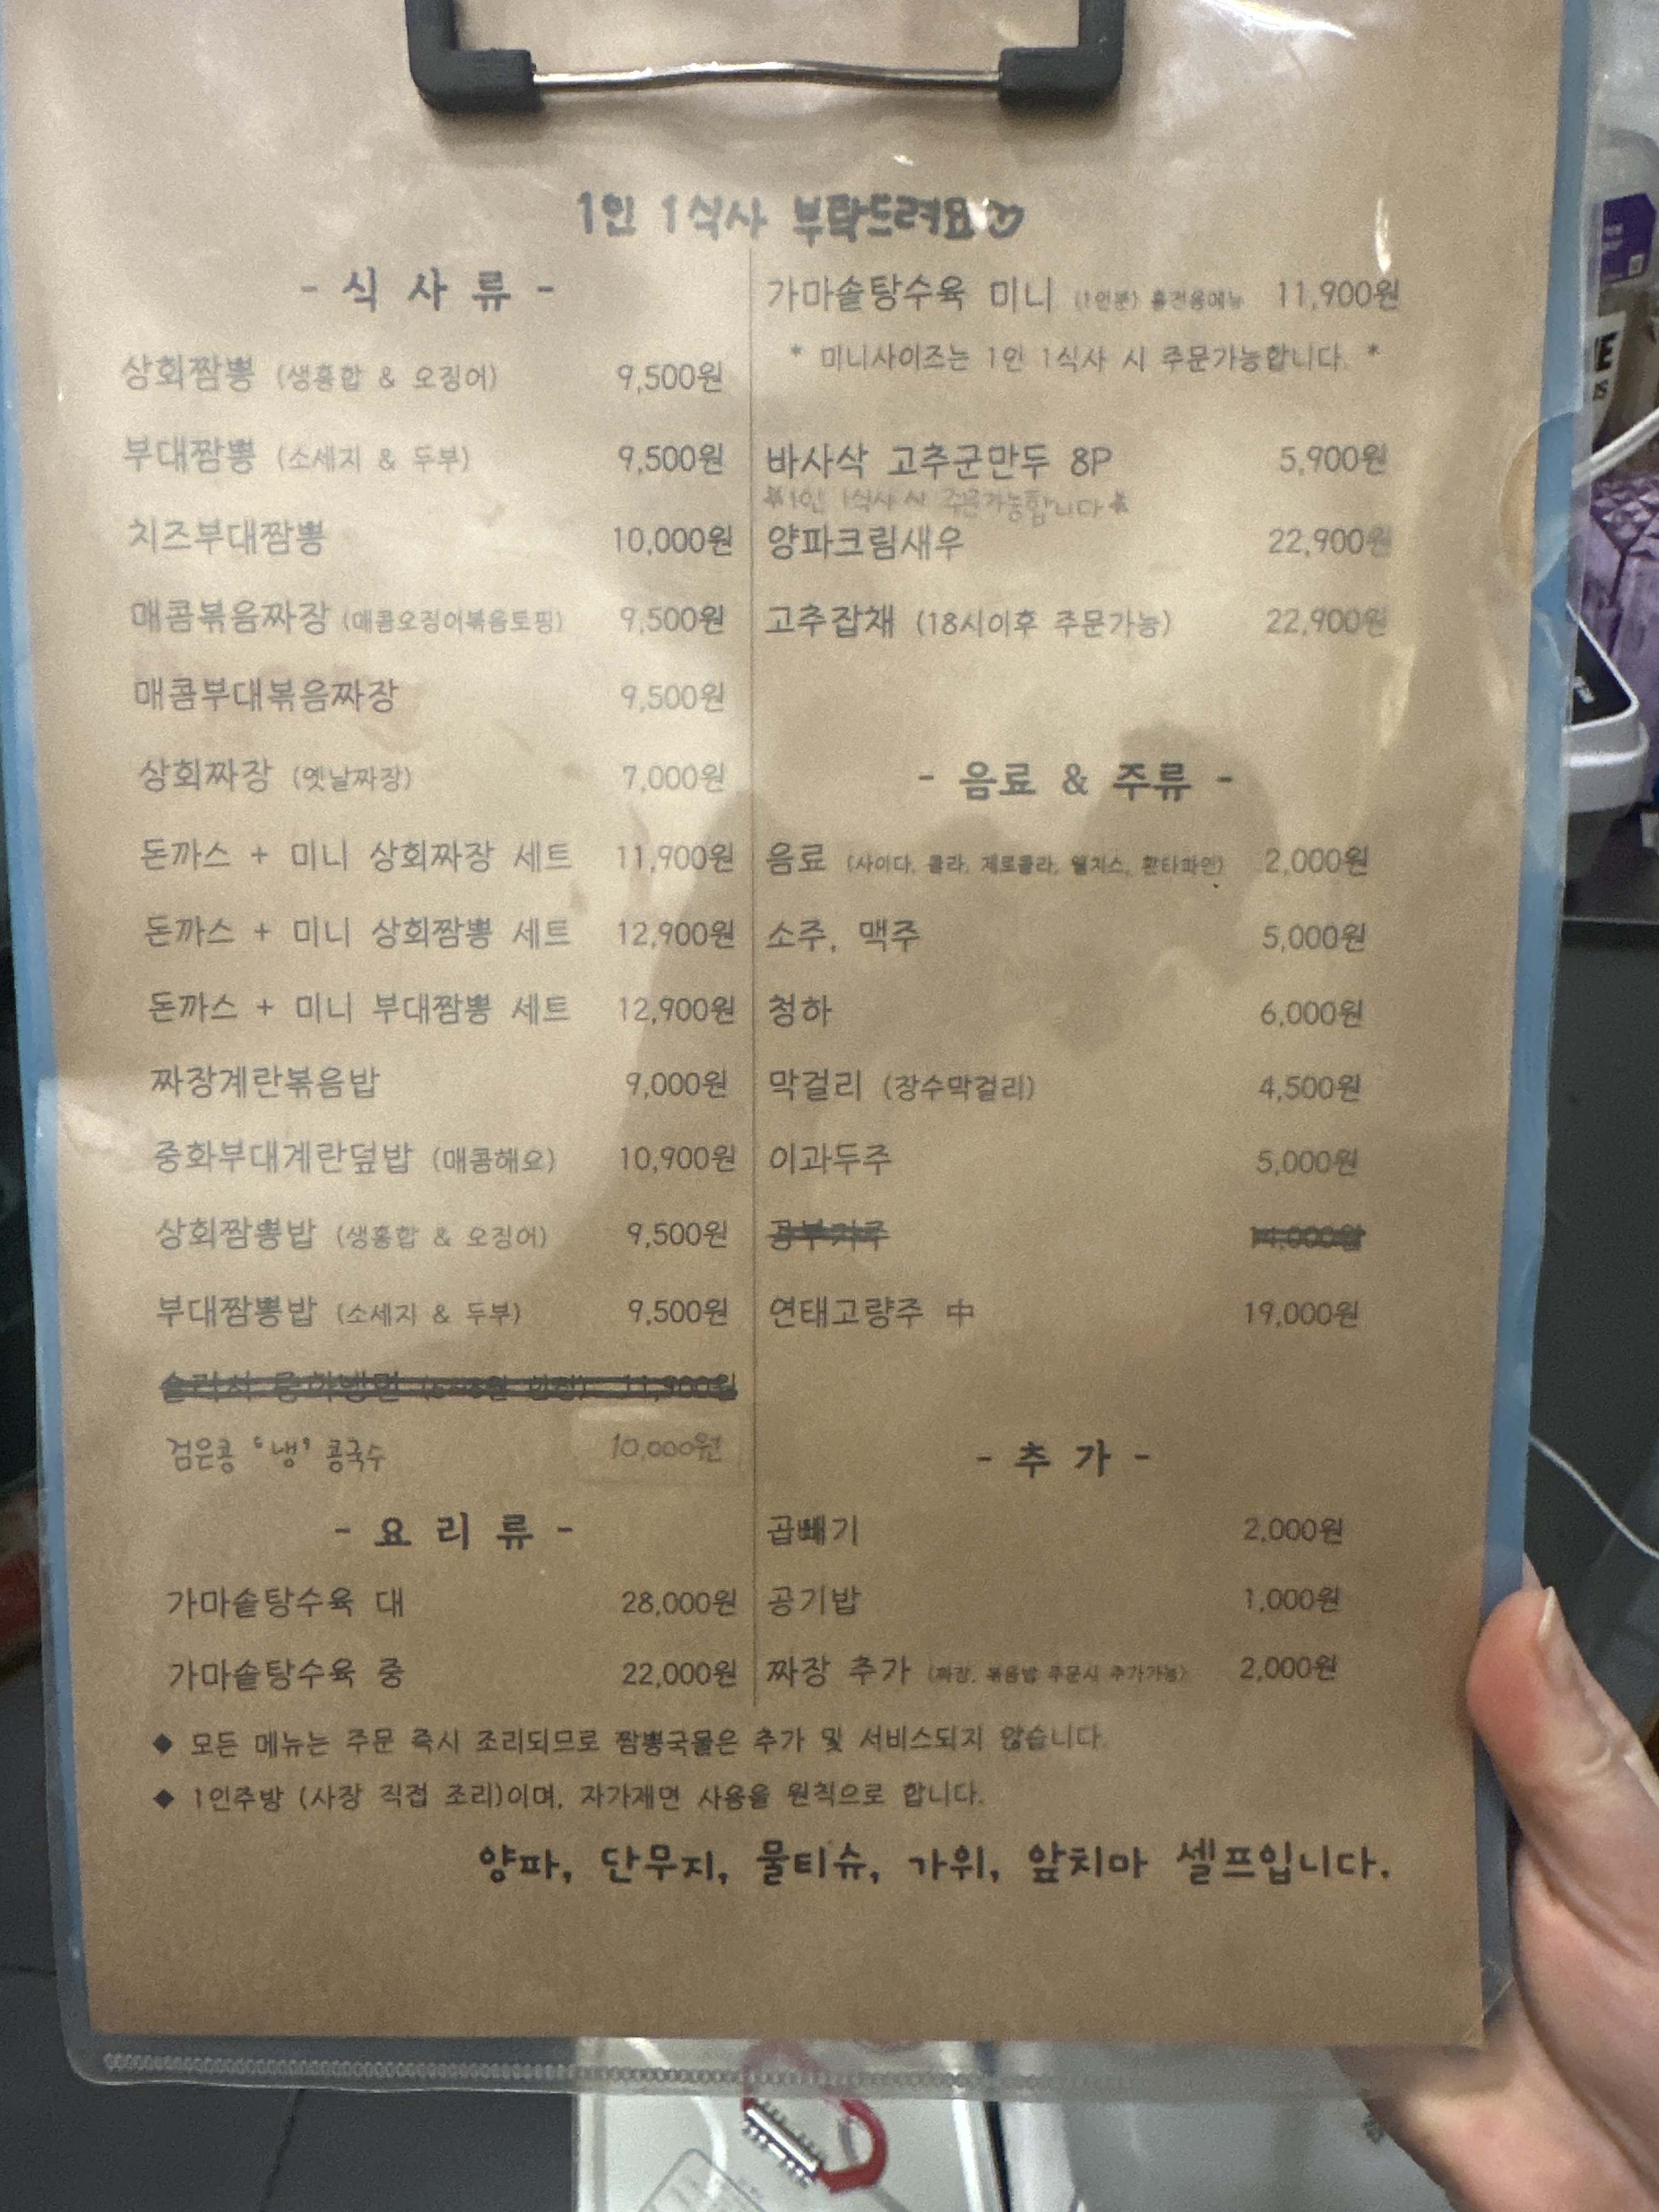 1인 1식사 부탁드려요♡
- 식 사 류 -
상회짬뽕 (생홍합 & 오징어) 9,500원
부대짬뽕 (소세지 & 두부) 9,500원
치즈부대짬뽕 10,000원
매콤볶음짜장 (매콤오징어볶음토핑) 9,500원
매콤부대볶음짜장 9,500원
상회짜장 (옛날짜장) 7,000원
돈까스 + 미니 상회짜장 세트 11,900원
돈까스 + 미니 상회짬뽕 세트 12,900원
돈까스 + 미니 부대짬뽕 세트 12,900원
짜장계란볶음밥 9,000원
중화부대계란덮밥 (매콤해요) 10,900원
상회짬뽕밥 (생홍합 & 오징어) 9,500원
부대짬뽕밥 (소세지 & 두부) 9,500원
11,900원
검은콩 '냉' 콩국수 10,000원
- 요 리 류 -
가마솥탕수육 대 28,000원
가마솥탕수육 중 22,000원
가마솥탕수육 미니 (1인분) 홀전용메뉴 11,900원
* 미니사이즈는 1인 1식사 시 주문가능합니다. *
바사삭 고추군만두 8P 5,900원
*1인 1식사 시 주문가능합니다*
양파크림새우 22,900원
고추잡채 (18시이후 주문가능) 22,900원
- 음료 & 주류 -
음료 (사이다, 콜라, 제로콜라, 웰치스, 환타파인) 2,000원
소주, 맥주 5,000원
청하 6,000원
막걸리 (장수막걸리) 4,500원
이과두주 5,000원
공부가주 14,000원
연태고량주 中 19,000원
- 추 가 -
곱빼기 2,000원
공기밥 1,000원
짜장 추가 (짜장, 볶음밥 주문시 추가가능) 2,000원
◆ 모든 메뉴는 주문 즉시 조리되므로 짬뽕국물은 추가 및 서비스되지 않습니다.
◆ 1인주방 (사장 직접 조리)이며, 자가제면 사용을 원칙으로 합니다.
양파, 단무지, 물티슈, 가위, 앞치마 셀프입니다.